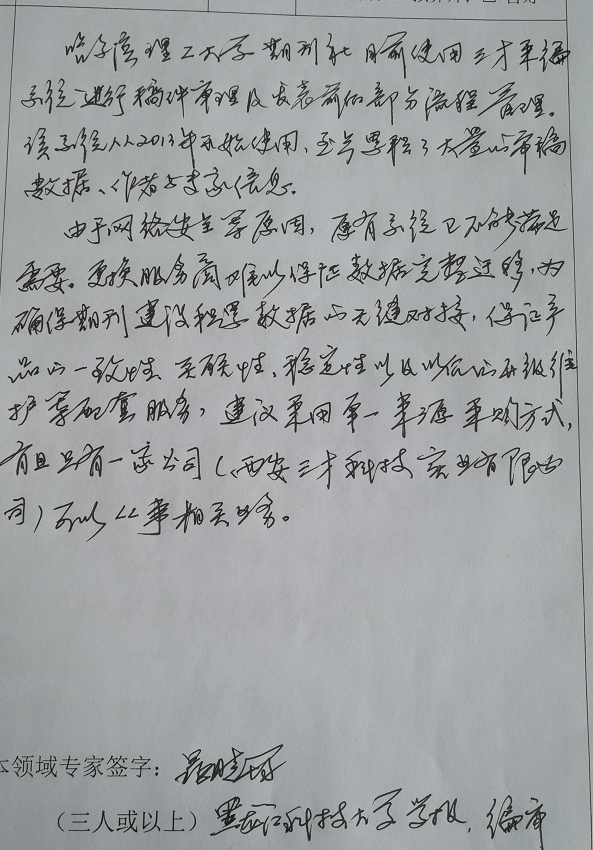 哈尔滨理工大学期刊社目前使用三才采编
系统进行稿件审理及发表前的部分流程管理。
该系统从2013年开始使用,至今累积了大量的审稿
数据、作者与专家信息。
由于网络安全等原因,原有系统已不能满足
需要。更换服务商难以保证数据完整迁移,为
确保期刊建设积累数据的无缝对接,保证产
品的一致性、关联性、稳定性以及以后的升级维
护等配套服务,建议采用单一来源采购方式,
有且只有一家公司(西安三才科技实业有限公
司)可以从事相关业务。
本领域专家签字:
(三人或以上)黑龙江科技大学学报,编审